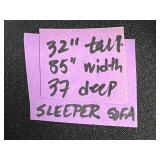 32" tall
85" width
37 deep
SLEEPER SOFA